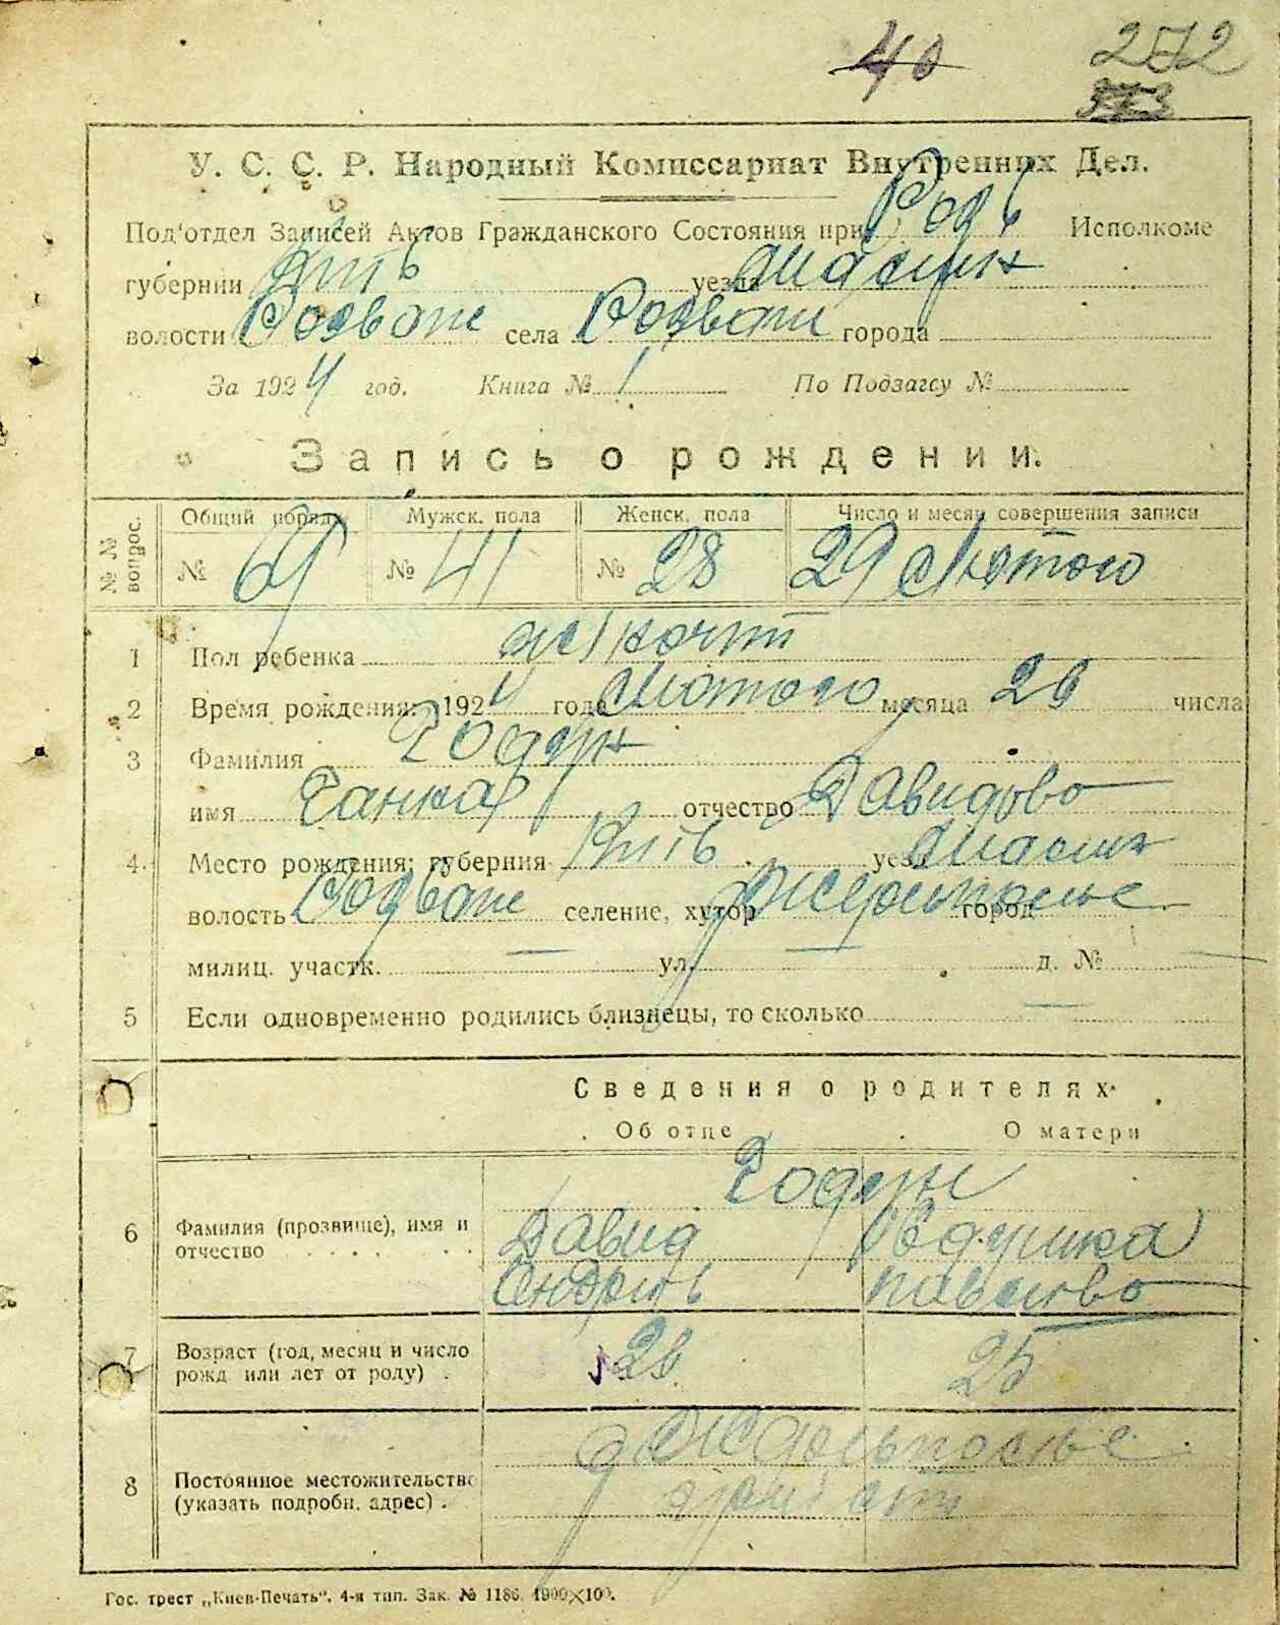 40 272
373
У. С. С. Р. Народный Комиссариат Внутренних Дел.
Под'отдел Записей Актов Гражданского Состояния при Исполкоме
губернии Київ уезда
волости Розваж села Розваж города
За 1924 год. Книга № 1 По Подзагсу №
Запись о рождении.
№ № вопрос. Общий поряд. Мужск. пола Женск. пола Число и месяц совершения записи
№ 69 № 41 № 28 29 Лютого
1 Пол ребенка жіночий
2 Время рождения: 1924 года Лютого месяца 26 числа
3 Фамилия
имя Ганна отчество Давидово
4. Место рождения; губерния Київ уезд
волость Розваж селение, хутор город
милиц. участк. — ул. — д. № —
5 Если одновременно родились близнецы, то сколько —
Сведения о родителях.
Об отце О матери
6 Фамилия (прозвище), имя и отчество
Давид
Андріїв Павлово
7 Возраст (год, месяц и число рожд или лет от роду) . 28 25
8 Постоянное местожительство (указать подробн. адрес) .
Гос. трест „Киев-Печать“. 4-я тип. Зак. № 1186. 1900×100.